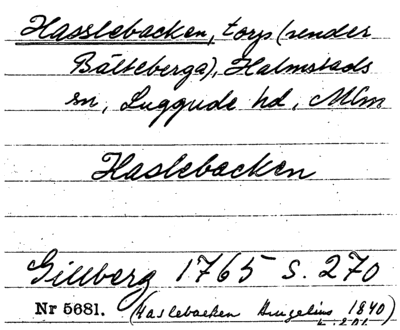 Hasslebacken, torp (under
Bälteberga), Halmstads
sn, Luggude hd, Mlm
Haslebacken
Gillberg 1765 s. 270
Nr 5681. (Haslebacken Hugelius 1840)